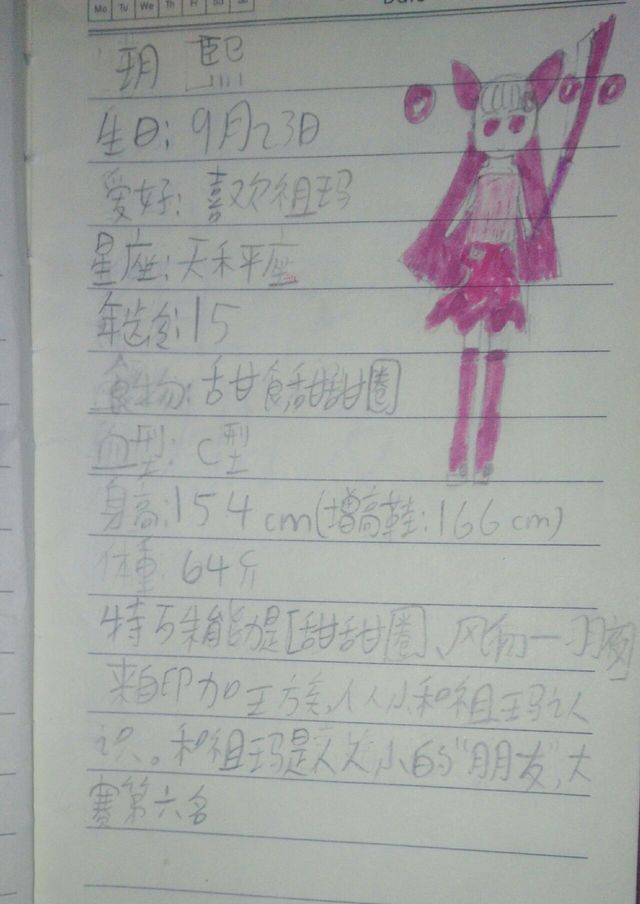 Mo Tu We Th Fr Sa Su Date
玥 熙
生日:9月23日
爱好:喜欢祖玛
星座:天秤座
年龄:15
食物:甜食甜甜圈
血型:C型
身高:154cm(增高鞋:166cm)
体重:64斤
特殊能力是[甜甜圈、风雨一
来自印加王族,从小和祖玛认
识。和祖玛是从小的"朋友",大
赛第六名